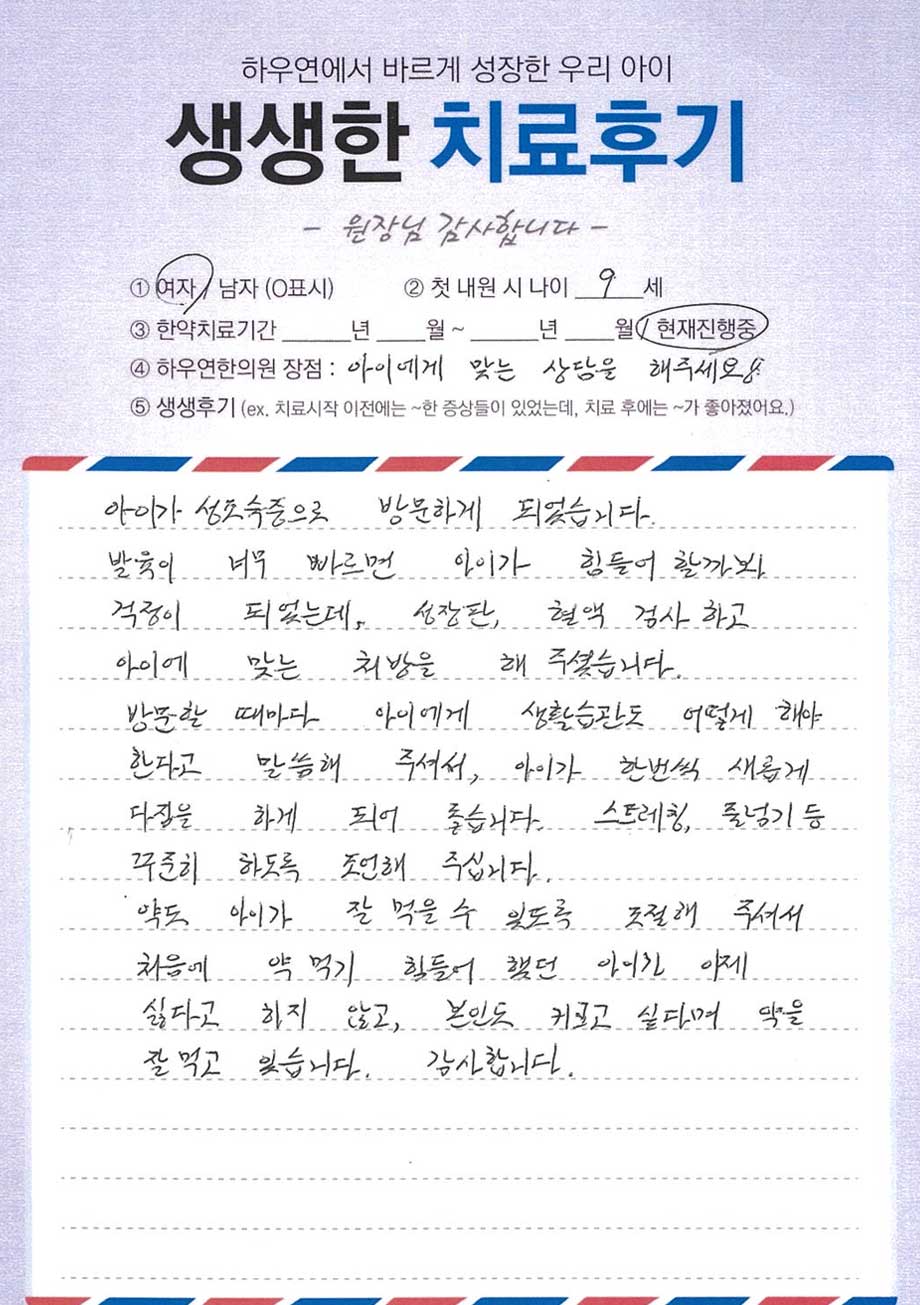 하우연에서 바르게 성장한 우리 아이
생생한 치료후기
- 원장님 감사합니다 -
① 여자 / 남자 (O표시) ② 첫 내원 시 나이 9 세
③ 한약치료기간 ______년 ____월 ~ ______년 ____월 / 현재진행중
④ 하우연한의원 장점 : 아이에게 맞는 상담을 해주세요!
⑤ 생생후기 (ex. 치료시작 이전에는 ~한 증상들이 있었는데, 치료 후에는 ~가 좋아졌어요.)
아이가 성조숙증으로 방문하게 되었습니다.
발육이 너무 빠르면 아이가 힘들어 할까봐
걱정이 되었는데, 성장판, 혈액 검사 하고
아이에 맞는 처방을 해 주셨습니다.
방문할 때마다 아이에게 생활습관도 어떻게 해야
한다고 말씀해 주셔서, 아이가 한번씩 새롭게
다짐을 하게 되어 좋습니다. 스트레칭, 줄넘기 등
꾸준히 하도록 조언해 주십니다.
약도 아이가 잘 먹을 수 있도록 조절해 주셔서
처음에 약 먹기 힘들어 했던 아이가 이제
싫다고 하지 않고, 본인도 키크고 싶다며 약을
잘 먹고 있습니다. 감사합니다.